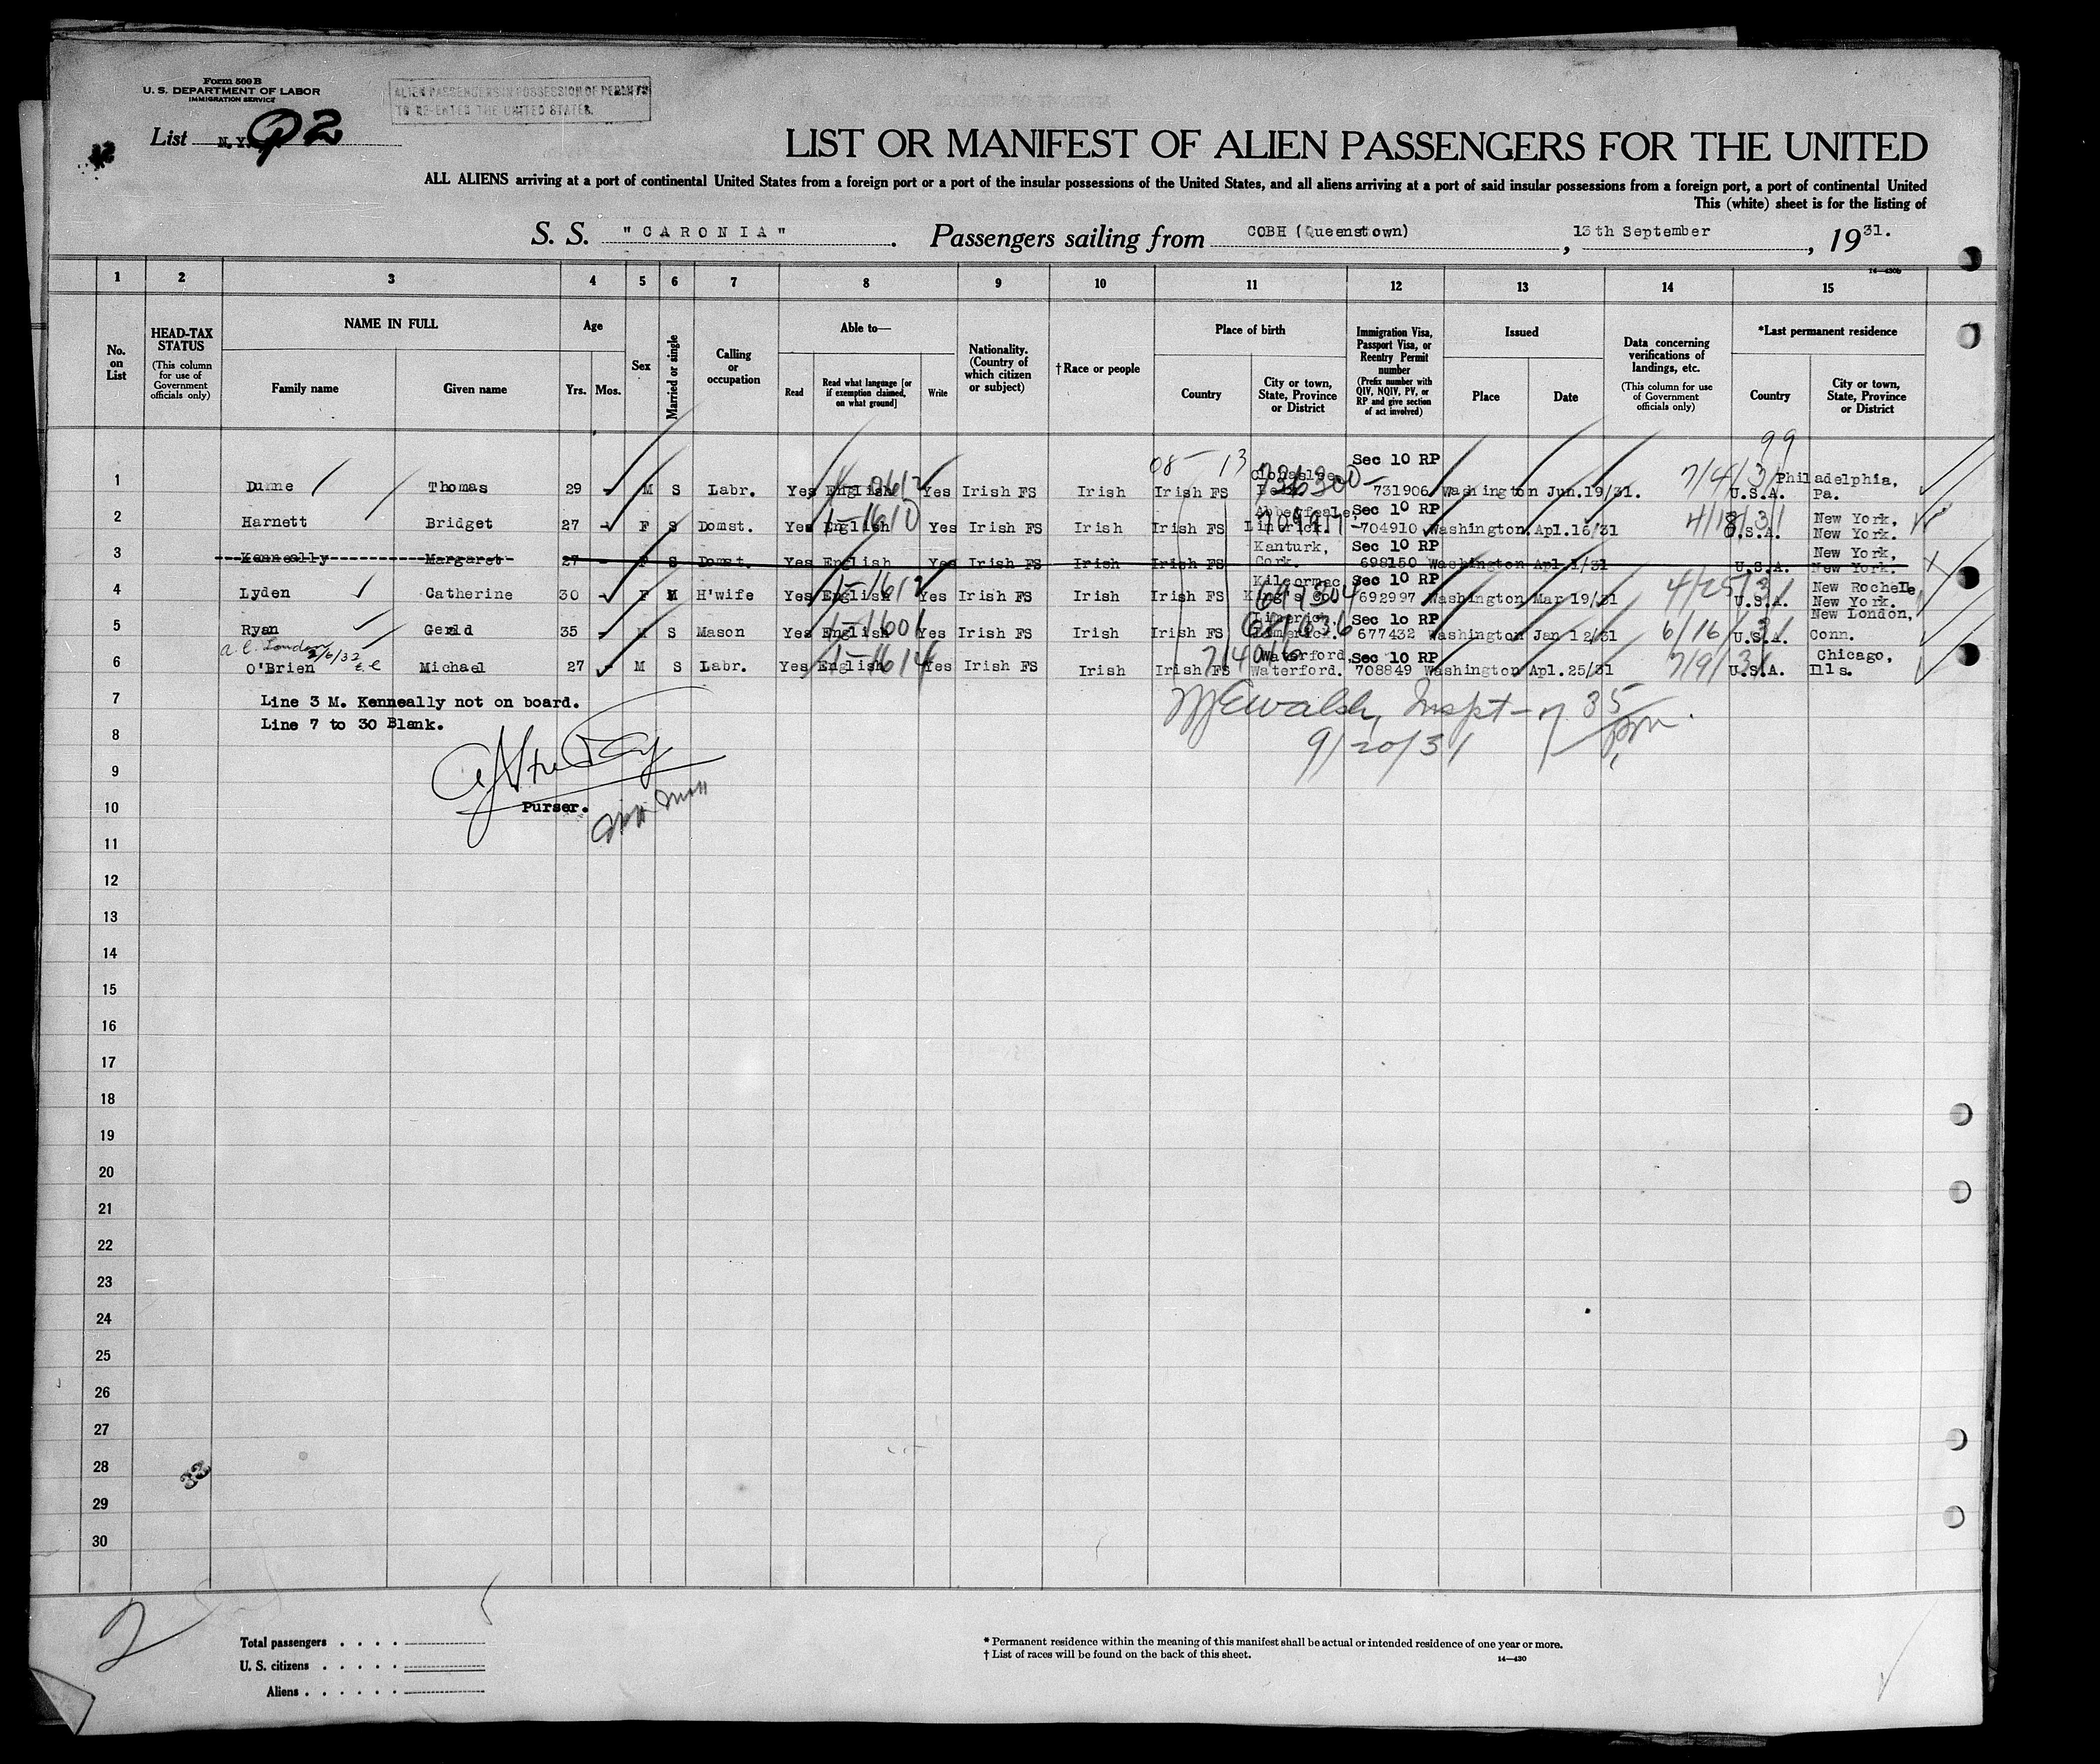 Form 500 B
U. S. DEPARTMENT OF LABOR
IMMIGRATION SERVICE
ALIEN PASSENGERS IN POSSESSION OF PERMITS
TO RE-ENTER THE UNITED STATES.
List N.Y. 92
LIST OR MANIFEST OF ALIEN PASSENGERS FOR THE UNITED
ALL ALIENS arriving at a port of continental United States from a foreign port or a port of the insular possessions of the United States, and all aliens arriving at a port of said insular possessions from a foreign port, a port of continental United
This (white) sheet is for the listing of
S. S. "CARONIA". Passengers sailing from COBH (Queenstown), 13th September, 1931.
14—430b
1 2 3 4 5 6 7 8 9 10 11 12 13 14 15
No. on List
HEAD-TAX STATUS (This column for use of Government officials only)
NAME IN FULL Family name Given name
Age Yrs. Mos.
Sex
Married or single
Calling or occupation
Able to— Read Read what language [or if exemption claimed, on what ground] Write
Nationality. (Country of which citizen or subject)
†Race or people
Place of birth Country City or town, State, Province or District
Immigration Visa, Passport Visa, or Reentry Permit number (Prefix number with QIV, NQIV, PV, or RP and give section of act involved)
Issued Place Date
Data concerning verifications of landings, etc. (This column for use of Government officials only)
*Last permanent residence Country City or town, State, Province or District
99
08 - 13
1 Dunne Thomas 29 M S Labr. Yes English Yes Irish FS Irish Irish FS 736300 Sec 10 RP 731906 Washington Jun.19/31. 7/4/31 U.S.A. Philadelphia, Pa.
2 Harnett Bridget 27 F S Domst. Yes English 1-1610 Yes Irish FS Irish Irish FS Abbeyfeale, Limerick. Sec 10 RP -704910 Washington Apl.16/31 4/18/31 U.S.A. New York, New York.
3 Kenneally Margaret 27 F S Domst. Yes English Yes Irish FS Irish Irish FS Kanturk, Cork. Sec 10 RP 698150 Washington Apl 1/31 U.S.A. New York, New York.
4 Lyden Catherine 30 F M H'wife Yes English 1-1612 Yes Irish FS Irish Irish FS Kilcormac, King's Co. Sec 10 RP 692997 Washington Mar 19/31 4/25/31 U.S.A. New Rochelle, New York.
5 Ryan Gerald 35 M S Mason Yes English 1-1601 Yes Irish FS Irish Irish FS Limerick, Limerick. 671636 Sec 10 RP 677432 Washington Jan 12/31 6/16/31 U.S.A. New London, Conn.
2/6/32
6 O'Brien Michael 27 M S Labr. Yes English 1-1614 Yes Irish FS Irish Irish FS Waterford, Waterford. 714016 Sec 10 RP 708849 Washington Apl.25/31 7/9/31 U.S.A. Chicago, Ills.
7 Line 3 M. Kenneally not on board.
Line 7 to 30 Blank.
Walsh, Inspt - 7 35 pm.
9/20/31
8
9
10 Purser.
11
12
13
14
15
16
17
18
19
20
21
22
23
24
25
26
27
28
33
29
30
2
Total passengers . . . .
U. S. citizens . . . . .
Aliens . . . . . .
* Permanent residence within the meaning of this manifest shall be actual or intended residence of one year or more.
† List of races will be found on the back of this sheet.
14—430